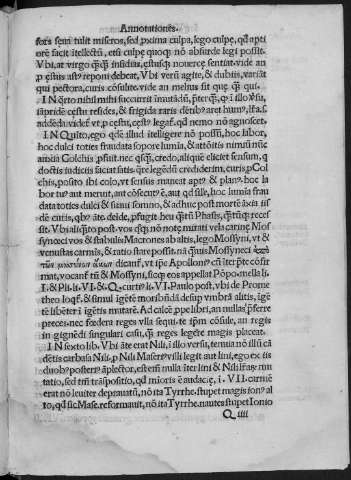 Annotationes.
fors sem̃ tulit miseros, sed ꝓxima culpa, lego culpę, qđ apti
ore facit ĩtellectũ, etsi culpę quoqȝ nõ absurde legi possit.
Vbi, at virgo insidius, estusqȝ nouercę sentiat. vide an
ꝓ ęstus ast⁹ reponi debeat, Vbi verũ agite, & dubiis, variãt
qui pectora, curis cõsulite. vide an melius sit quę qͥ qui.
IN q̃rto nihil mihi succurrit ĩmutãdũ, p̃terqȝ, qͥ ĩ illo v̓su,
iapridẽ cęstu resides, & frigida raris dẽtibꝰ aret humꝰ, fa.s.
addẽda. videt̃ vt ꝓ cęstu, cęstꝰ legat̃. qđ nemo nõ agnoscet.
IN Quito, ego qdẽ illud ĩtelligere nõ possũ, hoc labor,
hoc dulci toties fraudata sopore lumĩa, & attõitis nimiũ
amica Colchis credo, aliquẽ elicitet sensum,
doctis iudiciis faciat satis. q̃re legẽdũ crediderim, curis Col
chis, posito ibi colo, vt sensus maneat aptꝰ & planꝰ hoc la
bor tuꝰ aut meruit, aut cõsecutꝰ ẽ, aut qđ sile, hoc lumĩa frau
data toties dulci & suaui somno, & adhuc post mortẽ ãxia
dẽ curis, qbꝰ ãte. deide, ꝓfugit heu q̃tũ Phasis, q̃tũqȝ recess
sit. Vbi aliq̃to post. vos qsqȝ nõ notę mirati vela carinę Mos
synœci vos & stabulis Macrones ab altis, lego Mossyni, vt &
venustas carmĩs, & ratio stare possit. nã q̃uis Mossyneci ἀπὸ
τῶν μοσσύνων dicant̃, vt ipe Apollonꝰ cũ ĩterp̃te cõfir
mat, vocant̃ tñ & Mossyni, sicqȝ eos appellat Põpo. mella li.
I. & Pli. li. VI. & .Q. curtꝰ li. VI. Paulo post, vbi de Prome
theo loqt̃, & simul ĩgẽte moribũda desup vmbra alitis, ĩgẽ
tẽ libẽter ĩ ĩgẽtis mutarẽ. Ad calcẽ ꝓpe libri, an nullas p̃ferre
preces. nec fœdera reges vlla sequi. te ipm̃ cõsule, an regis
in gignẽdi singulari casu, qͣ reges legẽre magis placeat.
IN sexto lib. Vbi ãte erat Nili, ĩ illo versu, terruia nõ illũ cã
dẽtis carbasa Nili, ꝑ Nili Maserꝰ villi legit aut lini, ego ex iis
duobꝰ posterꝰ ãplector, est eñi nulla iter lini & Nili fa.s. mu
tatio, sed trãspositio, qđ mĩoris ẽ audacię, ĩ .VII. carmĩe
erat nõ leuiter deprauatũ, nõ ita Tyrrhe. stupet magis ionꝰ al
to, qđ sic Mase. reformauit, nõ ita Tyrrhe. nautes stupet Ionio
Q iiii